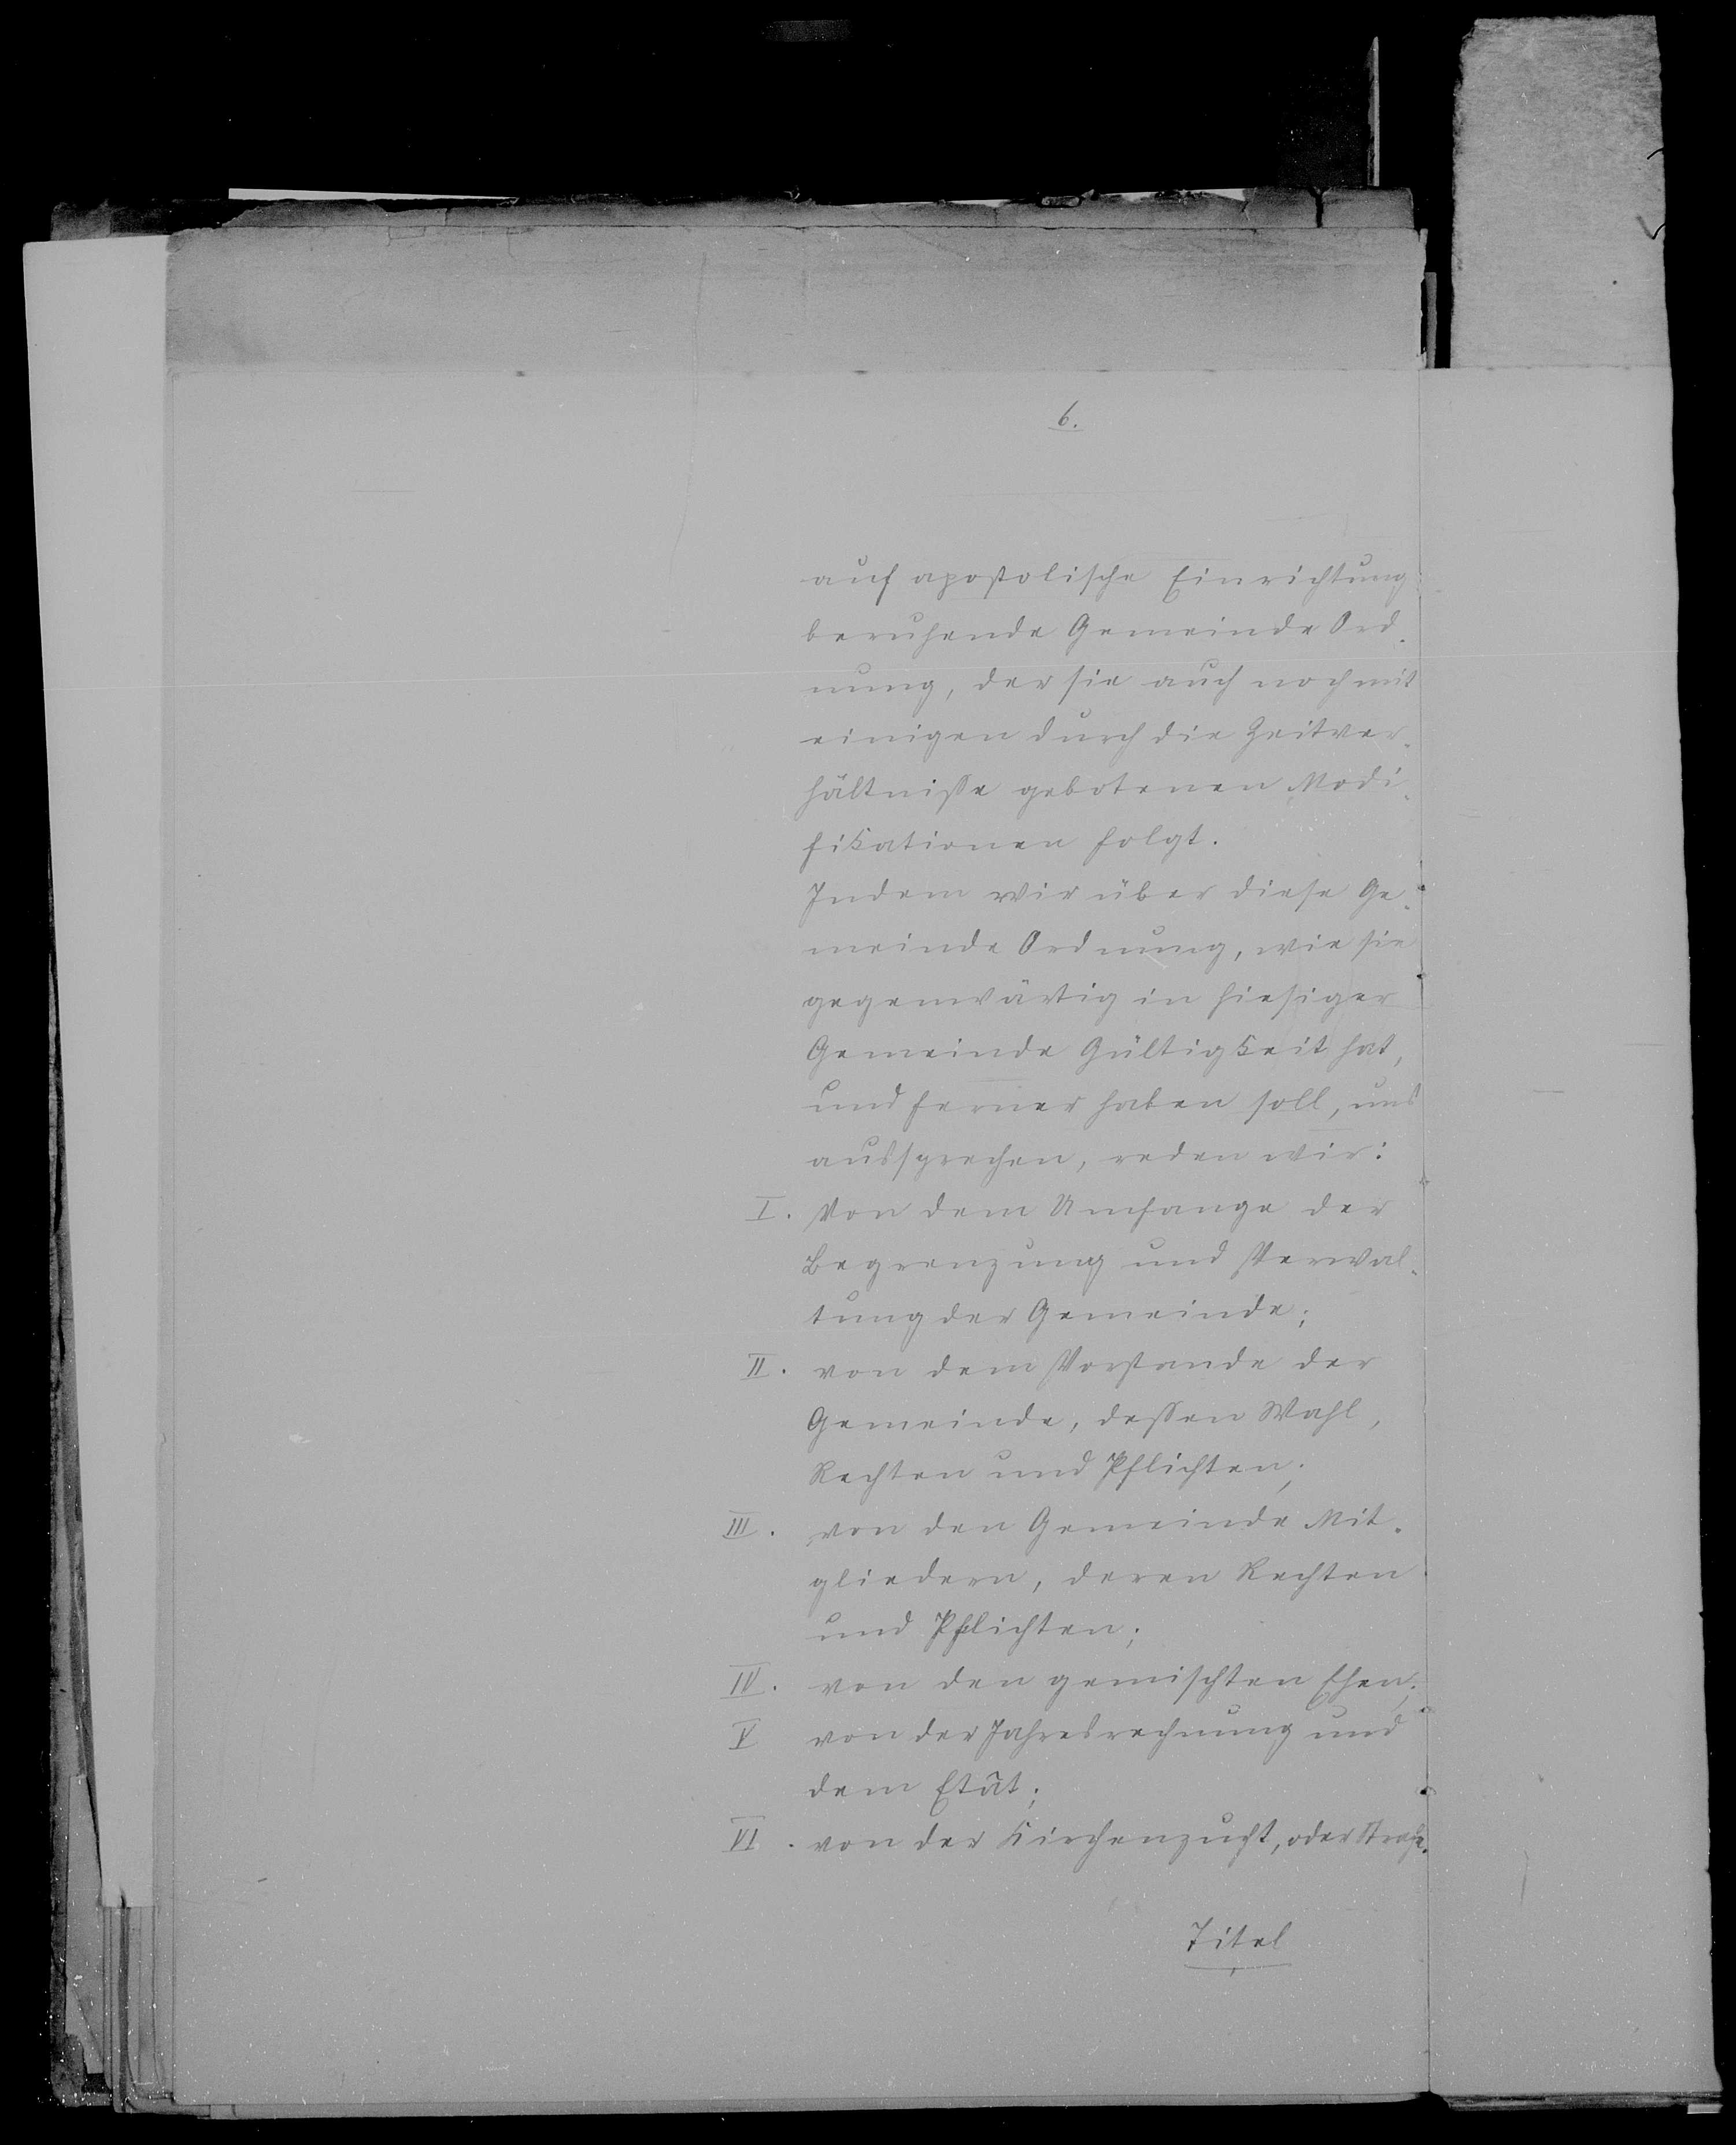 6.
auf apostolische Einrichtung
beruhende Gemeinde Ord-
nung, der sie auch noch mit
einigen durch die Zeitver-
hältnisse gebotenen Modi-
fikationen folgt.
Indem wir über diese Ge-
meinde Ordnung, wie sie
gegenwärtig in hiesiger
Gemeinde Gültigkeit hat,
und ferner haben soll, uns
aussprechen, reden wir:
I. Von dem Umfange der
Begrenzung und Verwal-
tung der Gemeinde;
II. von dem Vorstande der
Gemeinde, dessen Wahl,
Rechten und Pflichten;
III. von den Gemeinde Mit-
gliedern, deren Rechten
und Pflichten;
IV. von den gemischten Ehen;
V von der Jahresrechnung und
dem Etât;
VI. von der Kirchenzucht, oder Strafe.
Titel